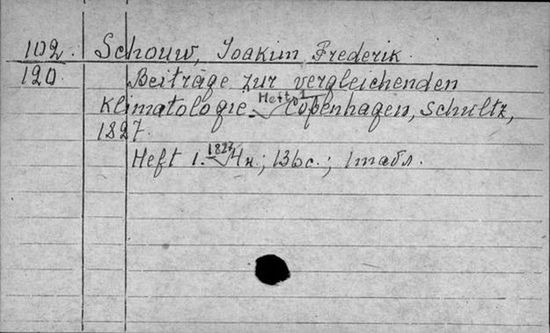 102. Schouw, Joakim Frederik.
120. Beiträge zur vergleichenden
Klimatologie. Heft 1 Copenhagen, Schultz,
1827.
Heft 1. 1827 4н.; 136с.; 1табл.